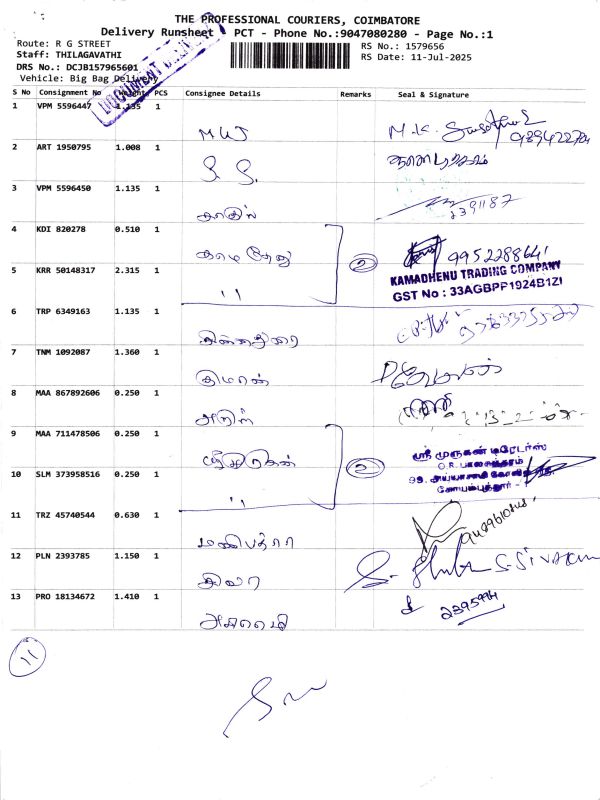 THE PROFESSIONAL COURIERS, COIMBATORE
Delivery Runsheet - PCT - Phone No.:9047080280 - Page No.:1
Route: R G STREET
RS No.: 1579656
Staff: THILAGAVATHI
RS Date: 11-Jul-2025
DRS No.: DCJB157965601
Vehicle: Big Bag Delivery
DOCUMENT
S No Consignment No PCS Consignee Details Remarks Seal & Signature
1 VPM 5596447 1.135 1
MKJ M.K.
2 ART 1950795 1.008 1
S. S.
3 VPM 5596450 1.135 1
காதல் 2391187
4 KDI 820278 0.510 1
காம தேனு 2 9952288641
KAMADHENU TRADING COMPANY
5 KRR 50148317 2.315 1
GST No : 33AGBPP1924B1ZI
"
6 TRP 6349163 1.135 1
7 TNM 1092087 1.360 1
குமரன்
8 MAA 867892606 0.250 1
அருள்
9 MAA 711478506 0.250 1
ஸ்ரீ முருகன் டிரேடர்ஸ்
2
10 SLM 373958516 0.250 1
கோயம்புத்தூர் - 1
"
11 TRZ 45740544 0.630 1
மணிபத்ரா
12 PLN 2393785 1.150 1
சிவா S. S. SIVAKUM
13 PRO 18134672 1.410 1
2395994
11